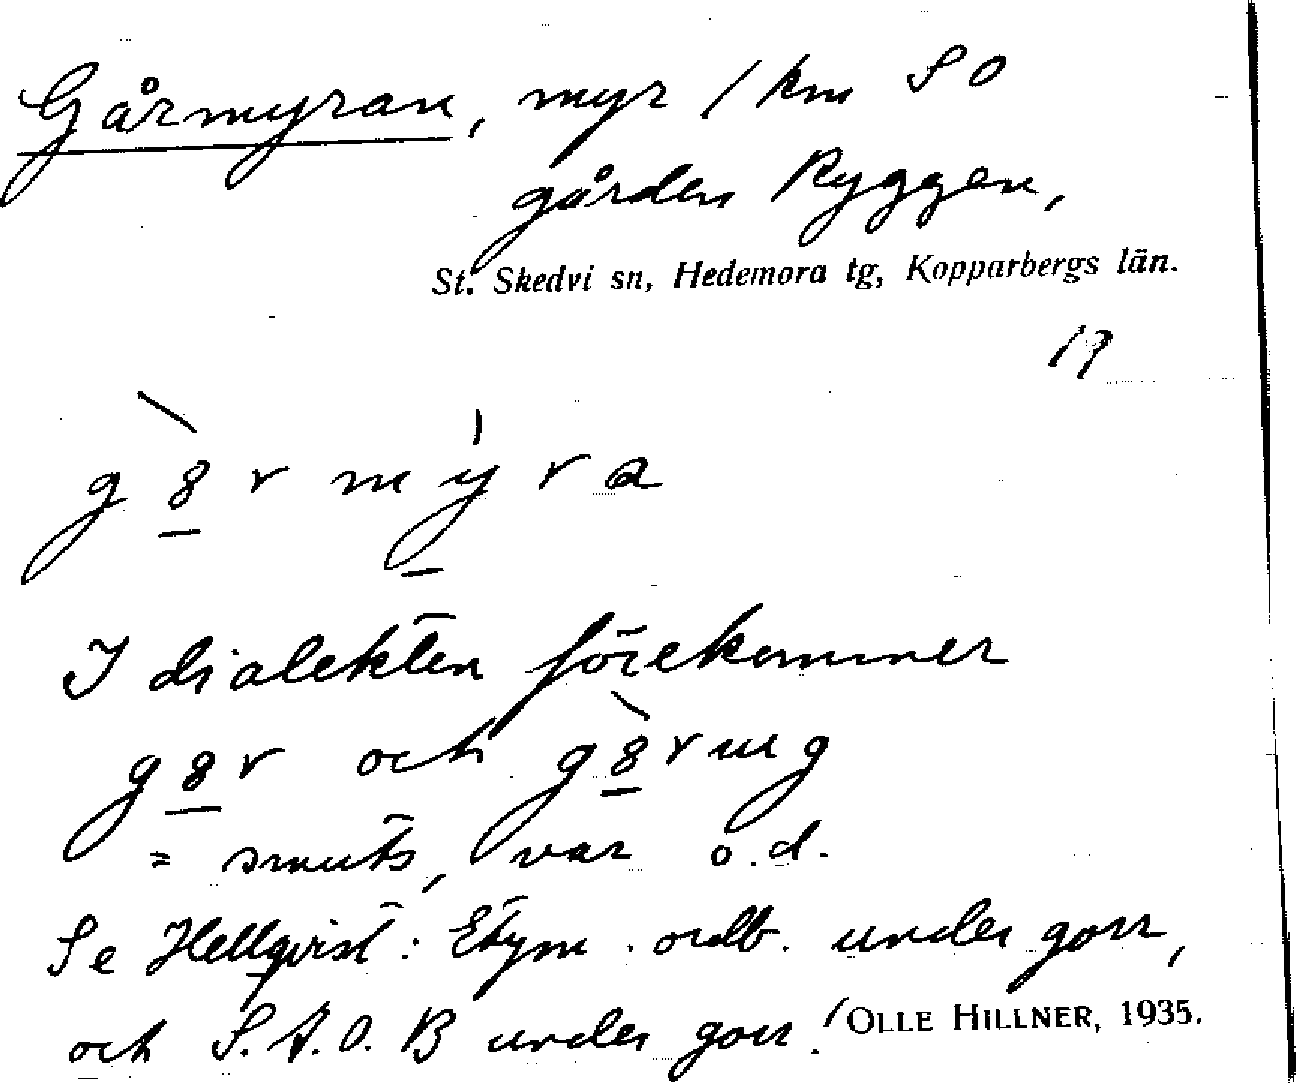 Gårmyran, myr 1 km SO
gården Ryggen,
St. Skedvi sn, Hedemora tg, Kopparbergs län.
19
g 8 r m y r a
I dialekten förekommer
g8r och g8rug
= smuts, var o.d.
Se Hellqvist: Etym. ordb. under gorr,
och S.A.O.B under gorr.
OLLE HILLNER, 1935.